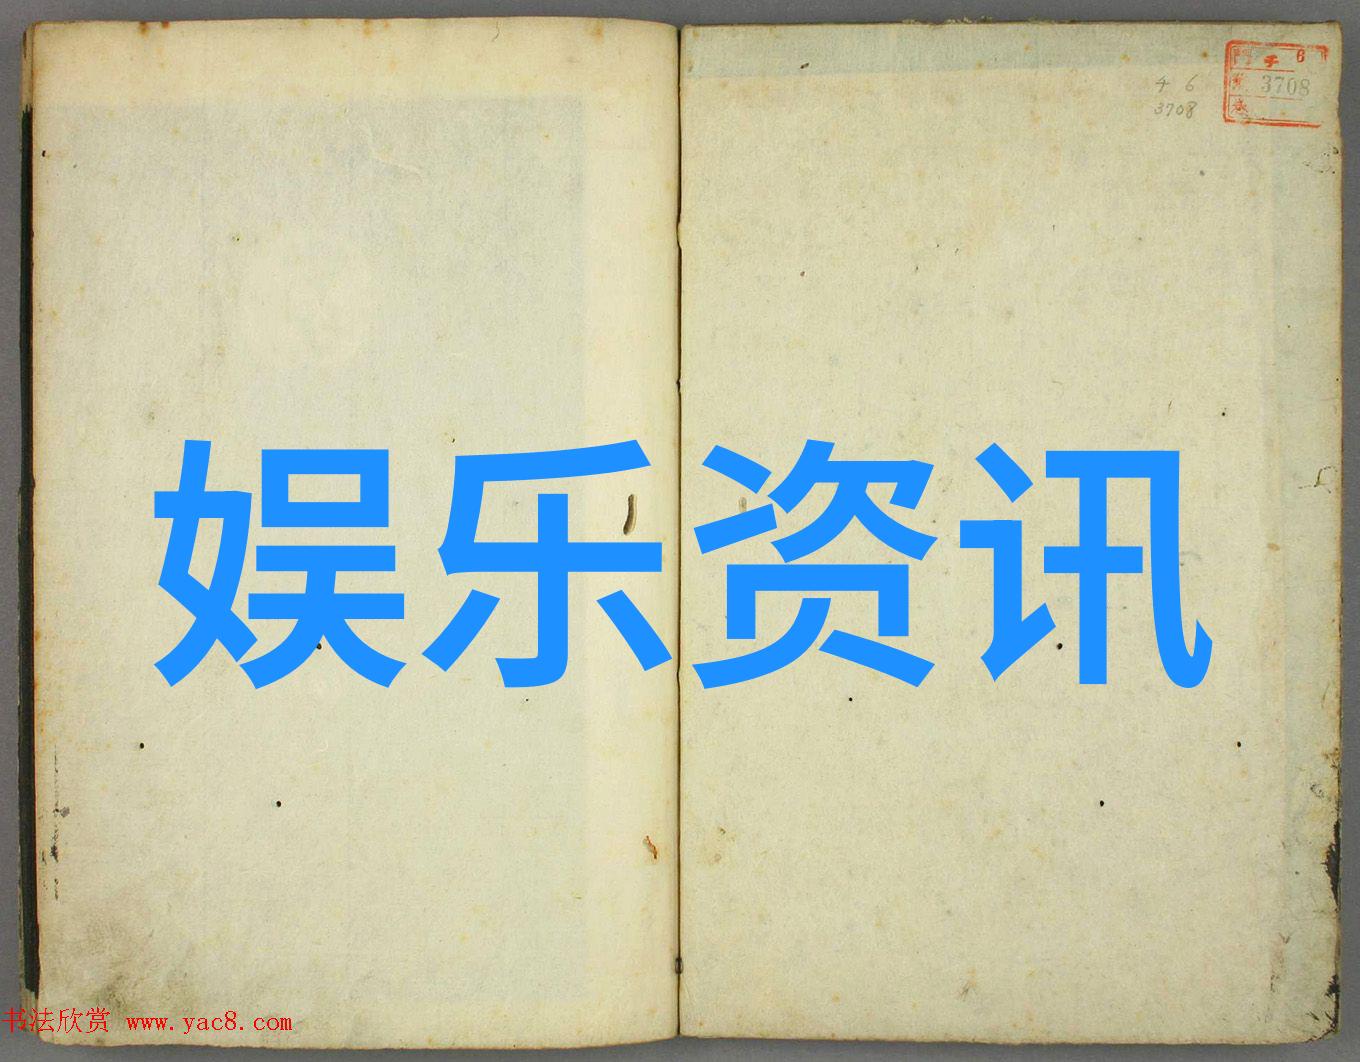 チ 6
3708
門 チ 6
3708
娱乐资讯
书法欣赏 www.yac8.com